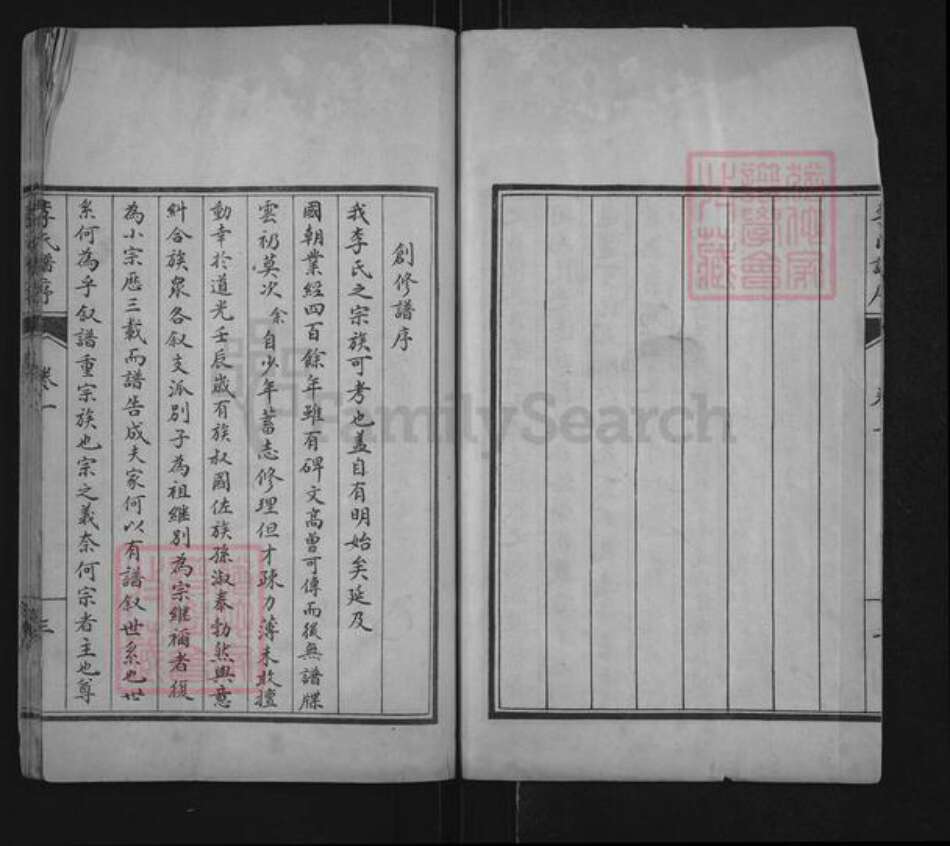 創修譜序
我李氏之宗族可考也蓋自有明始矣延及
國朝業經四百餘年雖有碑文高曾可傳而後無譜牒
雲礽莫次余自少年蓄志修理但才疎力薄未敢擅
動幸於道光壬辰歲有族叔國佐族孫淑泰勃然興意
糾合族衆各叙支派別子為祖繼別為宗繼禰者復
為小宗歷三載而譜告成夫家何以有譜叙世系也世
系何為乎叙譜重宗族也宗之義奈何宗者主也尊
李氏譜序
卷一
三
FamilySearch